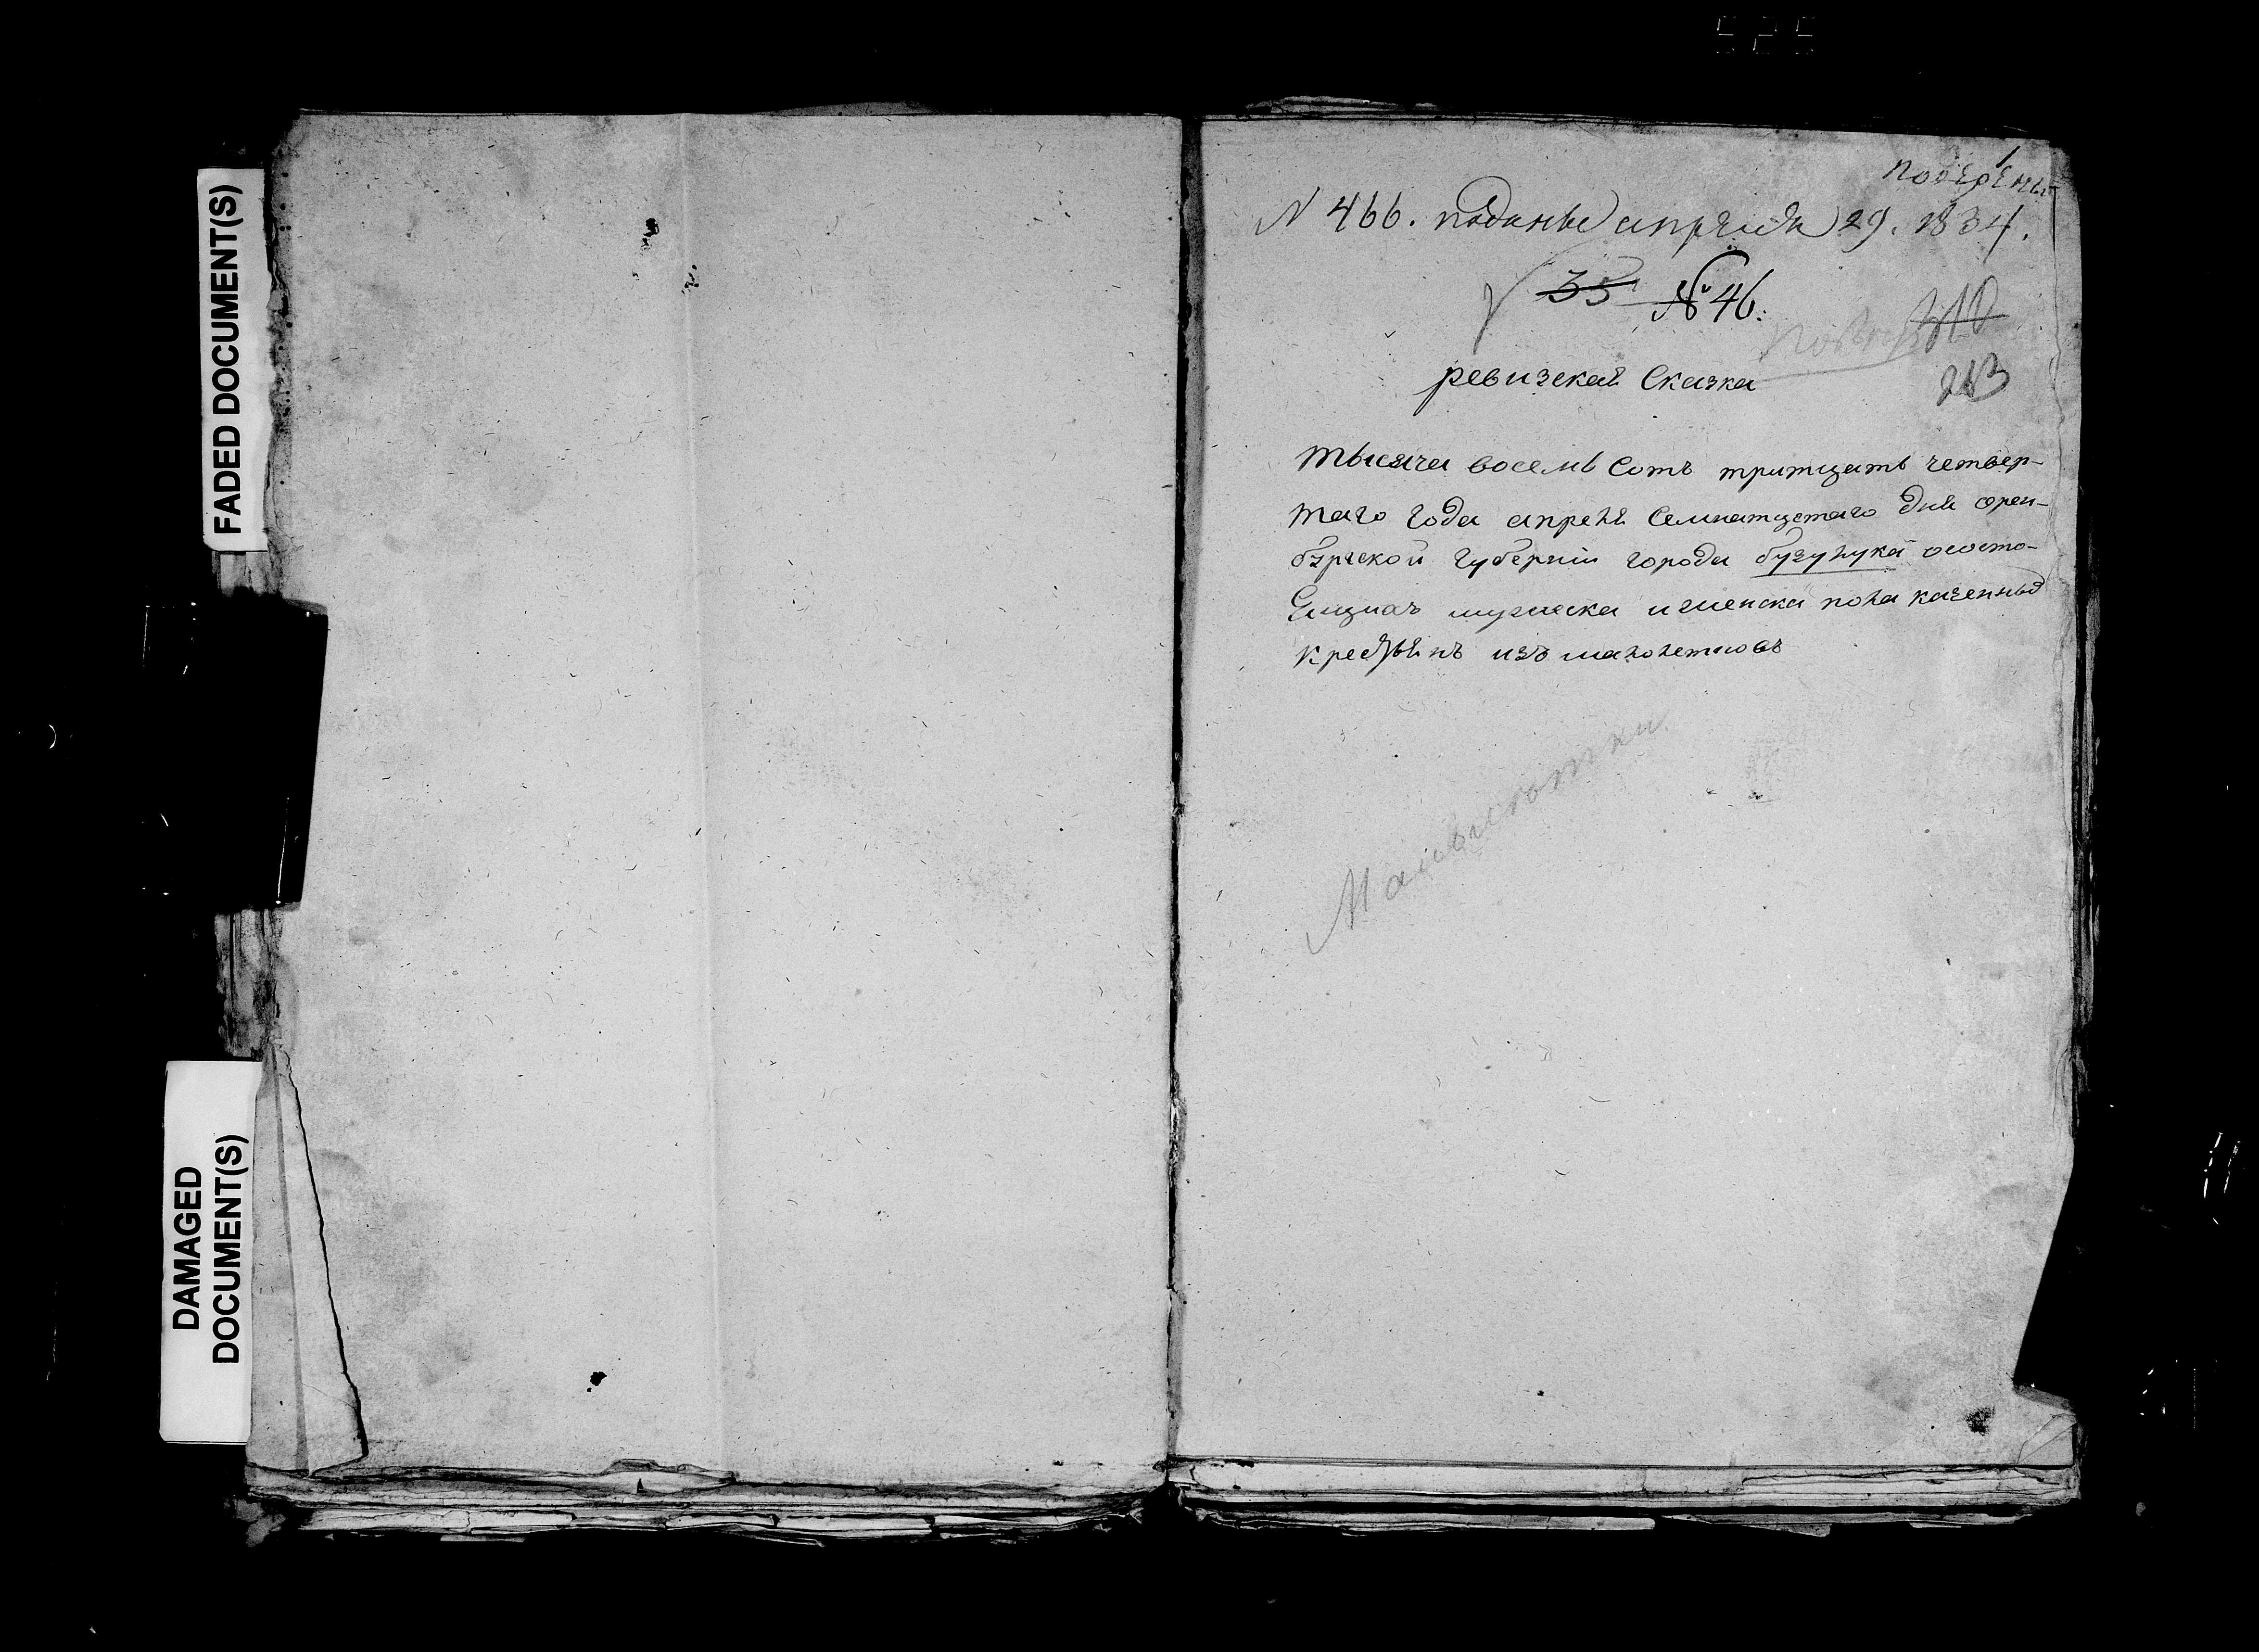 FADED DOCUMENT(S)
DAMAGED
DOCUMENT(S)
1
N 466. поданы апреля 29. 1834.
35 № 46.
ревизская Сказка
213
тысяча восемь Сотъ тритцать четвер-
таго года апреля Семнатцетаго дня орен-
бургской губерніи города бузулука ососто-
мужеска и женска пола казенныхъ
крестьянъ изъ малолетковъ
Малолютки